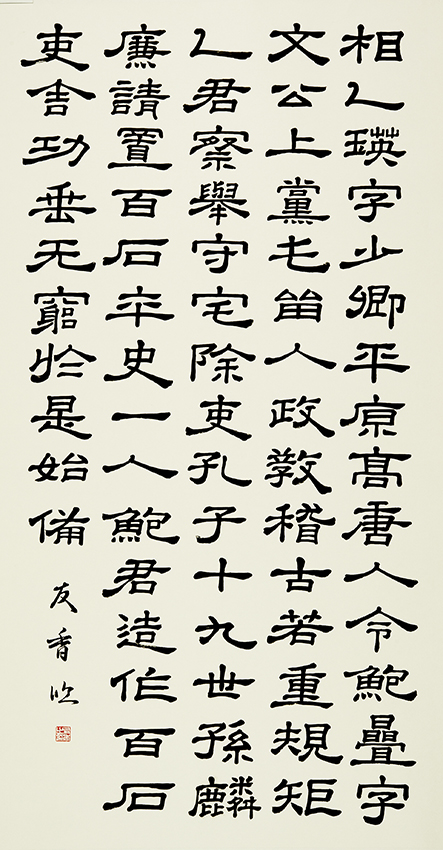 相乙瑛字少卿平原高唐人令鮑疊字
文公上黨屯留人政教稽古若重規矩
乙君察舉守宅除吏孔子十九世孫麟
廉請置百石卒史一人鮑君造作百石
吏舍功垂无窮於是始備
友香